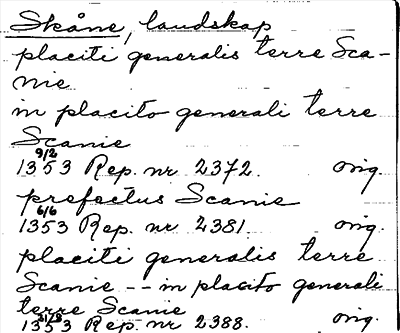 Skåne, landskap
placiti generalis terre Sca-
nie
in placito generali terre
Scanie
9/2
1353 Rep. nr 2372. orig.
prefectus Scanie
6/6
1353 Rep. nr 2381 orig.
placiti generalis terre
Scanie -- in placito generali
terre Scanie
1353 Rep. nr 2388. orig.